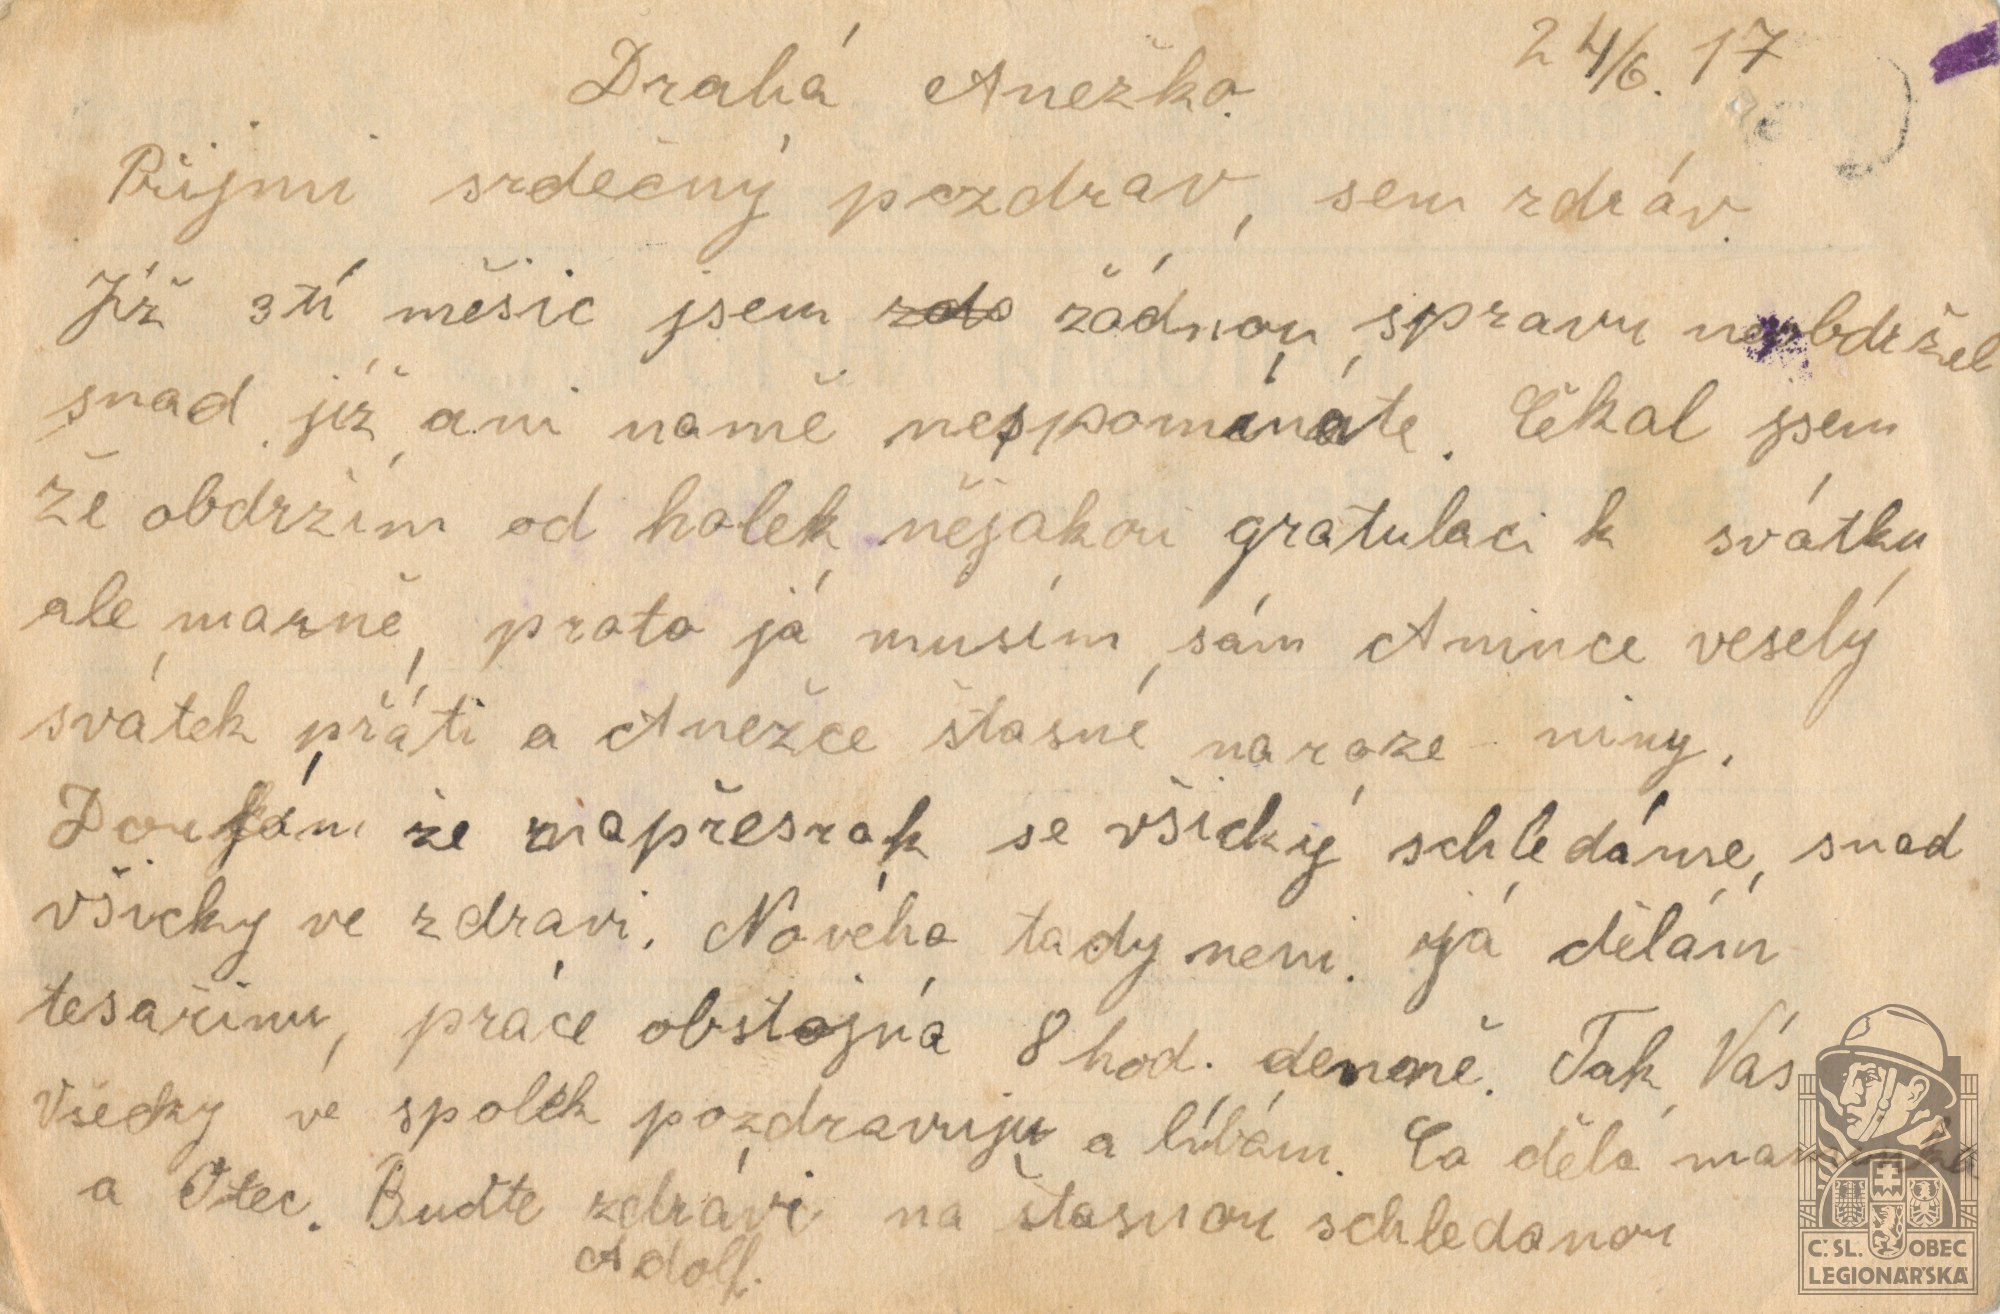 24/6. 17
Drahá Anežko.
Přijmi srdečný pozdrav, sem zdráv.
Již 3tí měsic jsem zdo žádnou spravu neobdržel
snad již ani namě nespomínáte. Čekal jsem
že obdržím od holek nějakou gratulaci k svátku
ale marně, proto já musím sám Anince veselý
svátek přáti a Anežce štasné naroze - niny.
Doufám že napřesrok se všický schledáme, snad
všicky ve zdravi. Nového tady neni. já dělám
tesařinu, práce obstojná 8 hod. denně. Tak Vás
Všecky ve spolek pozdravuju a líbám. Co dělá maminka
a Otec. Buďte zdrávi na štasnou schledanou
Adolf.
Č.SL. OBEC
LEGIONÁŘSKÁ